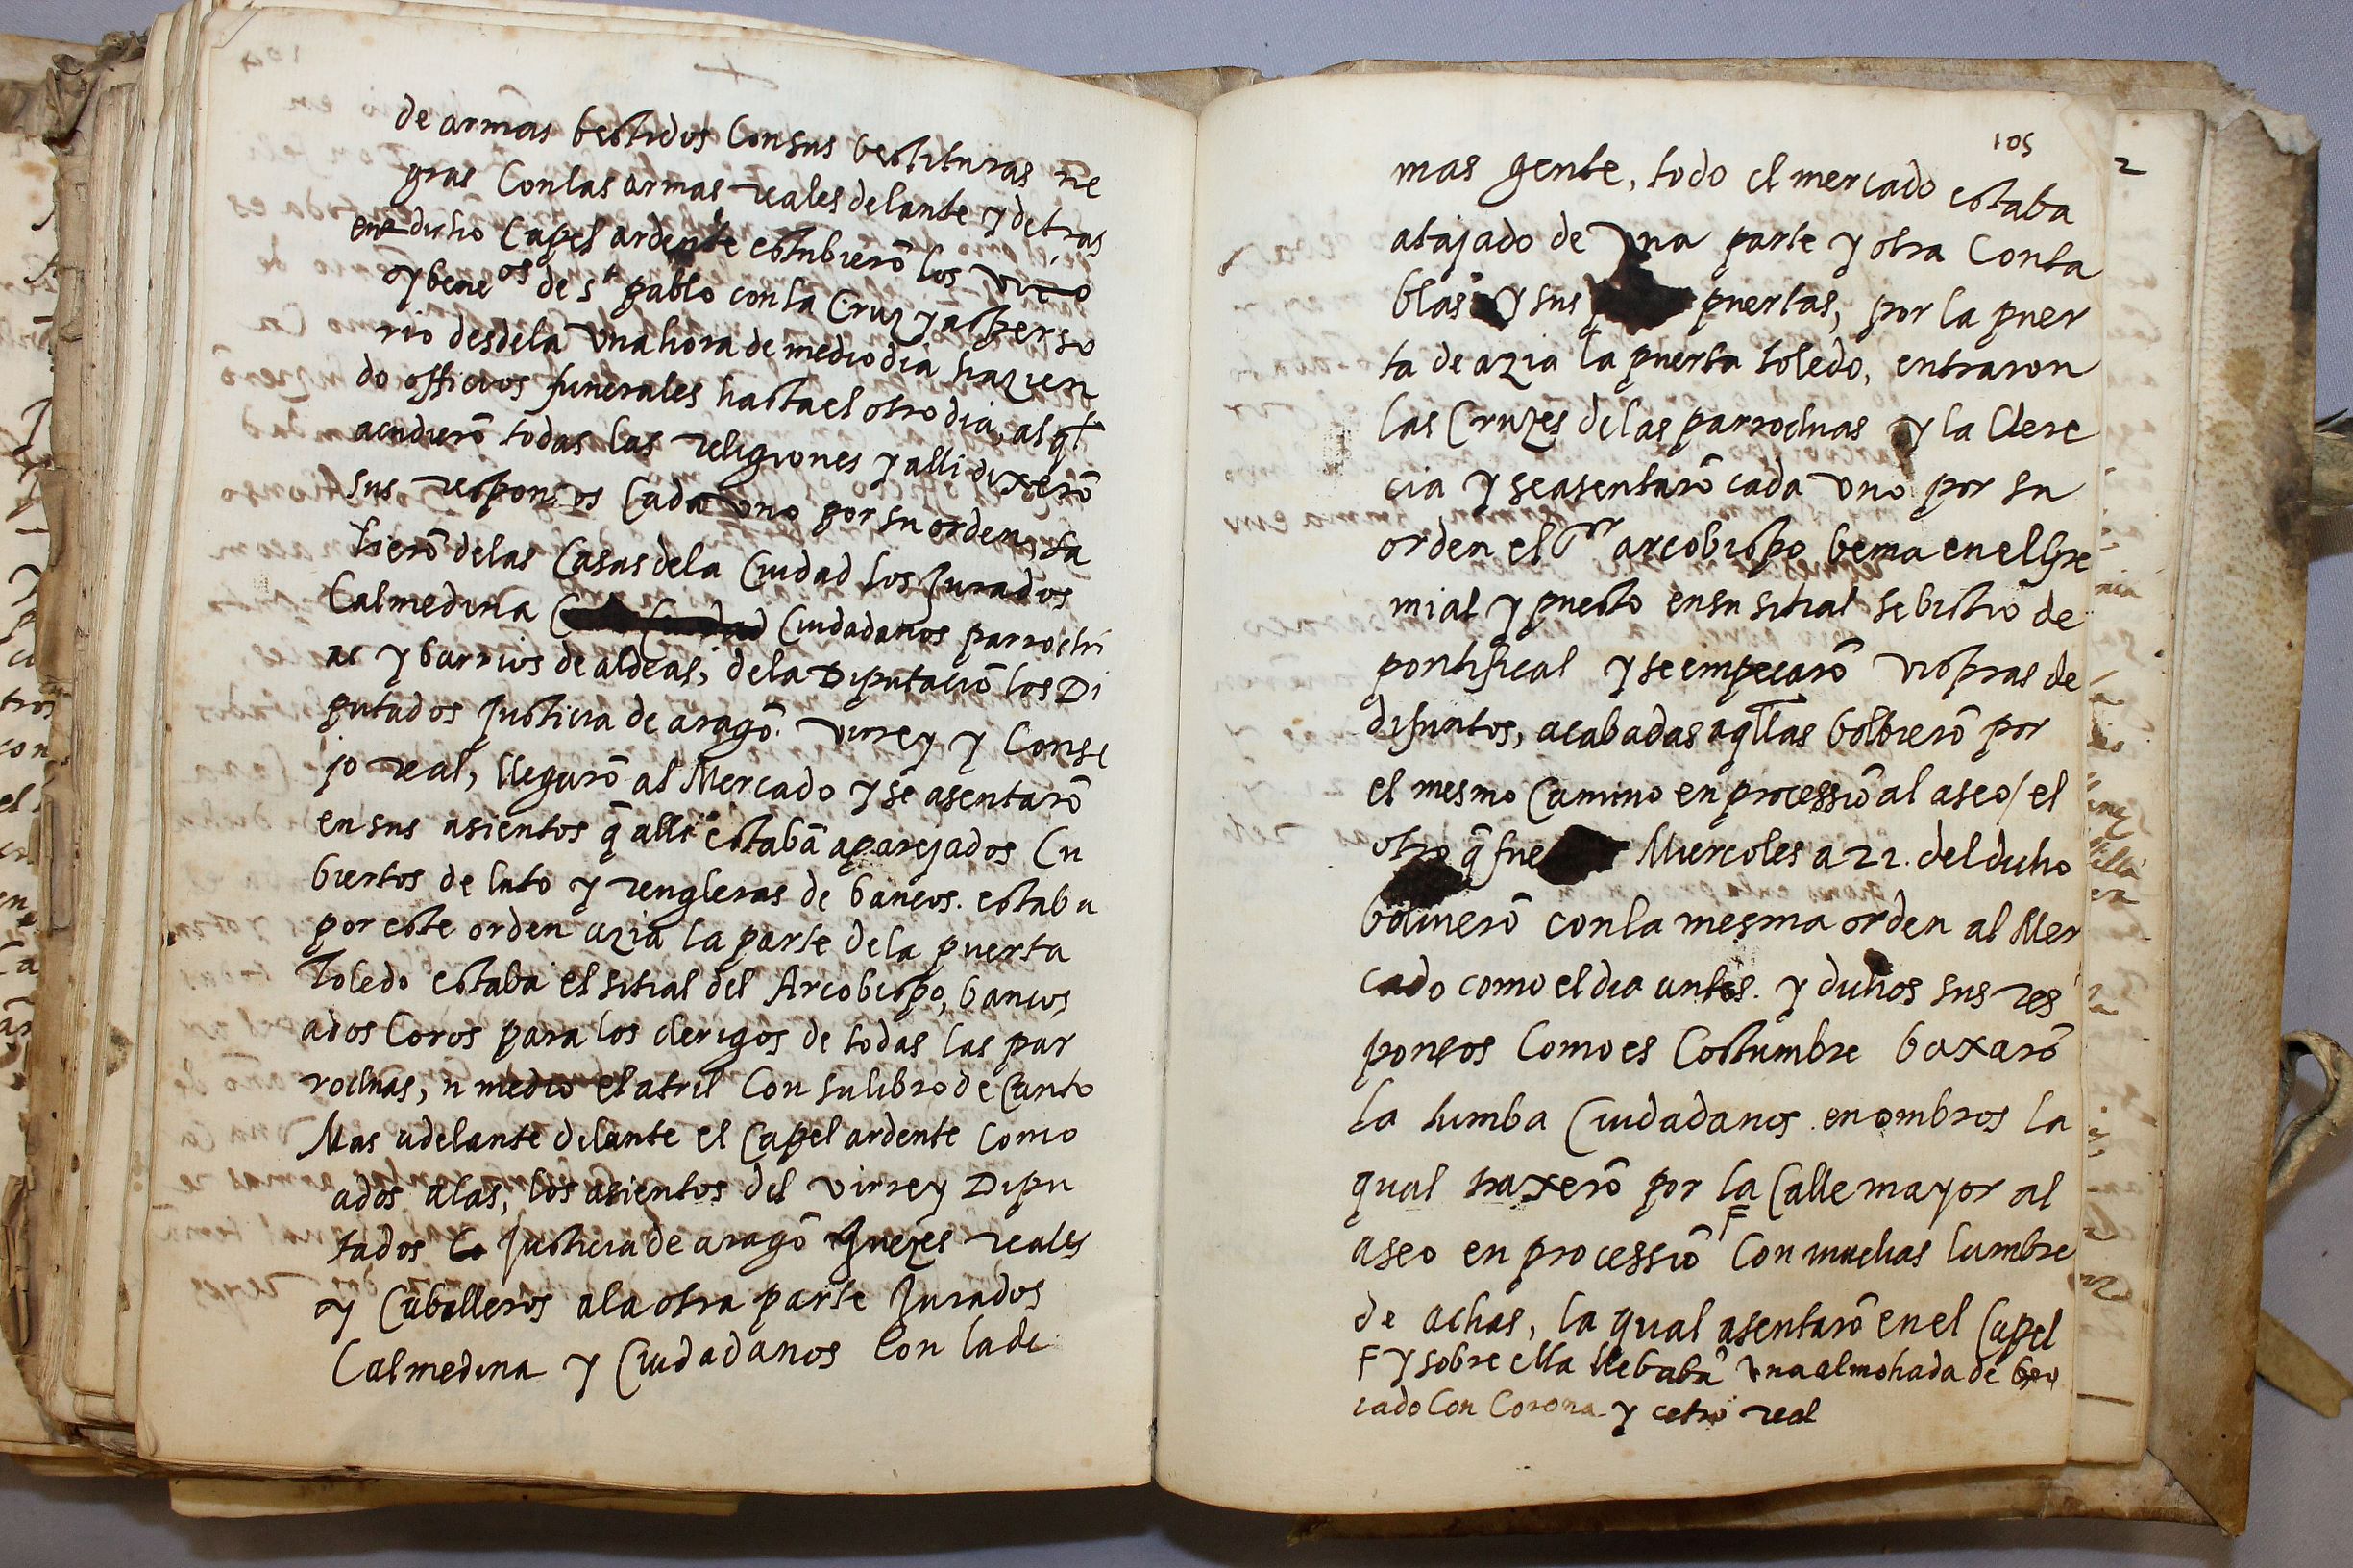 de armas bestidos Con sus bestituras ne
gras Con las armas reales delante y detras
en dicho Capel ardente estubierō los vic
y bene os de st pablo con la Cruz y asperso
rio desde la una hora de medio dia hazien
do officios funerales hasta el otro dia, al ql
acudierō todas las religiones y alli dixerō
sus responsos Cada uno por su orden, sa
lierō de las Casas dela Ciudad los Jurados
Calmedina Ciudadanos parrochi
as y barrios de aldeas, de la Diputaciō los Di
putados Justicia de aragō. virrey y Conse
jo real, llegarō al Mercado y se asentarō
en sus asientos q̄ alli estabā aparejados Cu
biertos de luto y rengleras de bancos. estaba
por este orden azia la parte dela puerta
Toledo estaba el sitial del Arcobispo, bancos
a dos Coros para los clerigos de todas las par
rochias, n medio el atril Con su libro de Canto
Mas adelante delante el Capel ardente Como
a dos alas, los asientos del virrey Dipu
tados Justicia de aragō Juezes reales
y Caballeros a la otra parte Jurados
Calmedina y Ciudadanos Con la de
105
mas gente, todo el mercado estaba
atajado de una parte y otra Con ta
blas y sus puertas, por la puer
ta de azia la puerta toledo, entraron
las Cruzes de las parrochias y la Clere
cia y se asentarō cada uno por su
orden el Sor arcobispo benia en el Gre
mial y puesto en su sitial se bistio de
pontifical y se empecarō vispras de
difuntos, acabadas aqllas bolbierō por
el mesmo Camino en processiō al aseo / el
otro q̄ fue Miercoles a 22. del dicho
bolvierō con la mesma orden al Mer
cado como el dia antes. y dichos sus res
ponsos Como es Costumbre baxarō
la tumba Ciudadanos en ombros la
qual traxerō por la Calle mayor al
aseo en processiō F Con muchas lumbre
de achas, la qual asentarō en el Capel
F y sobre ella llebabā una almohada de bro
cado Con Corona y cetro real
2